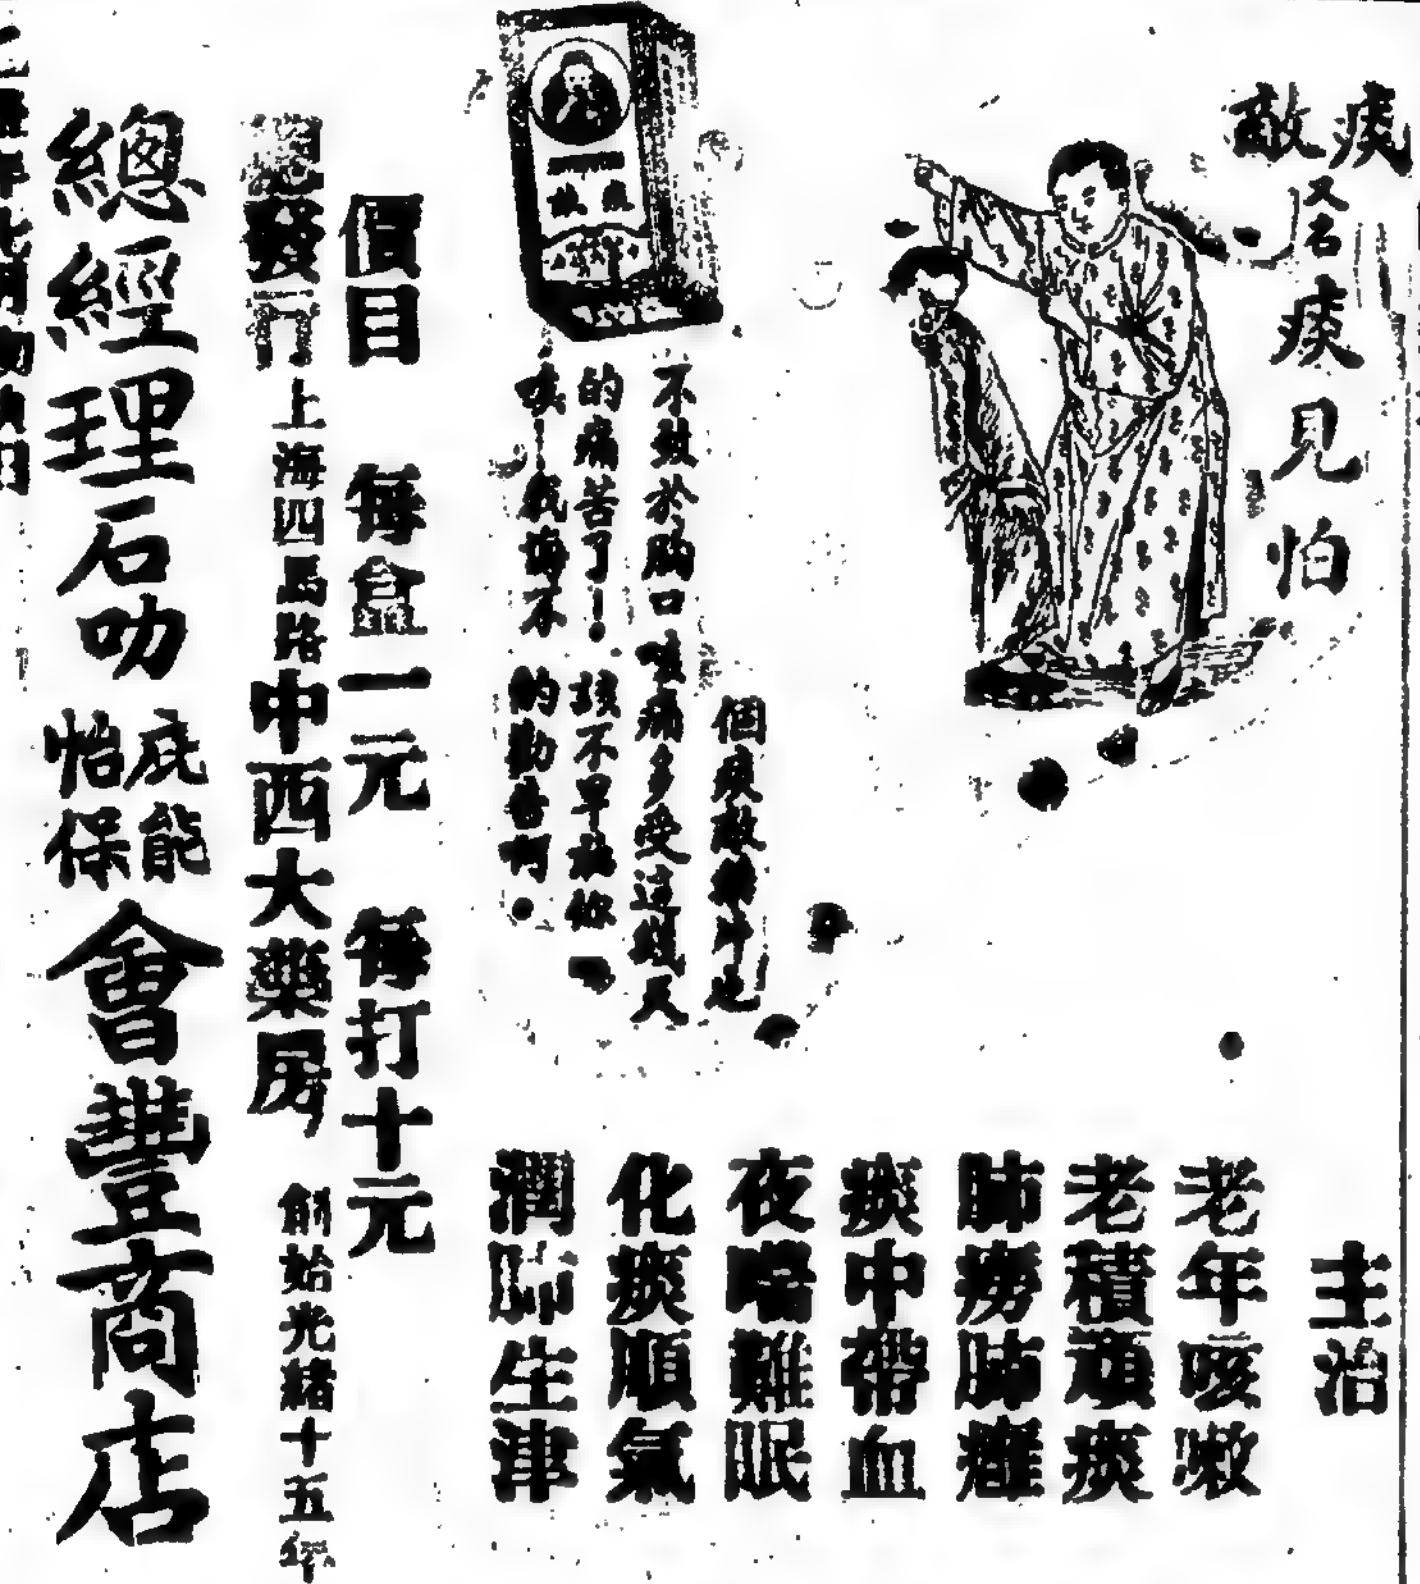 痰敵
又名
痰見怕
主治
老年咳嗽
老積頑痰
肺癆肺癰
痰中帶血
夜喘難眠
化痰順氣
潤肺生津
個痰敵
不致於胸口咳痛多受這幾天
的痛苦了！該不早放你
唉！我悔不的勸告啊
價目 每盒一元 每打十元
總發行 上海四馬路中西大藥房 創始光緒十五年
總經理石叻 庇能 怡保 會豐商店